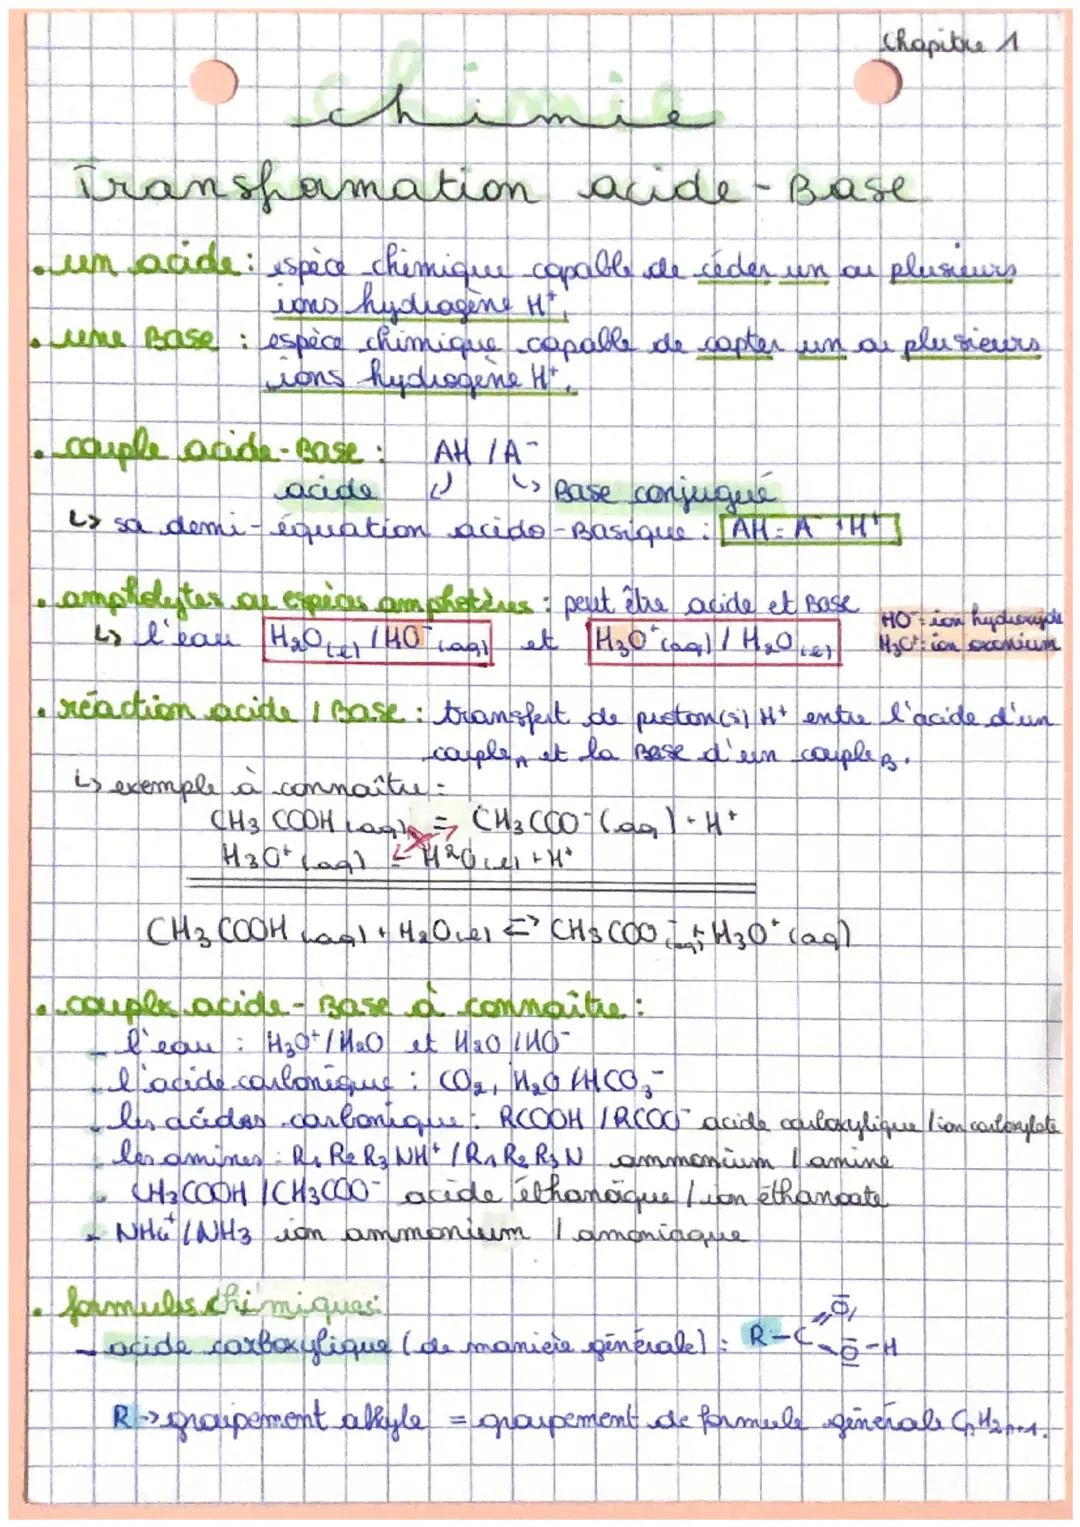 Chapitre 1
chimie
Transformation acide-Base
• un acide : espèce chimique capable de céder un ou plusieurs
ions hydrogène H⁺.
• une Base : espèce chimique capable de capter un ou plusieurs
ions hydrogène H⁺.
• couple acide-Base : AH / A⁻
acide ↲ ↳ Base conjugué
↳ sa demi-équation acido-Basique : AH = A⁻ + H⁺
• ampholytes ou espèces amphotères : peut être acide et Base
HO⁻ : ion hydroxyde
↳ l'eau H₂O(l) / HO⁻(aq) et H₃O⁺(aq) / H₂O(l)
H₃O⁺ : ion oxonium
• réaction acide / Base : transfert de proton(s) H⁺ entre l'acide d'un
couple A et la Base d'un couple B.
↳ exemple à connaître :
CH₃COOH(aq) = CH₃COO⁻(aq) + H⁺
H₃O⁺(aq) = H2O(l) + H⁺
CH₃COOH(aq) + H₂O(l) ⇌ CH₃COO⁻(aq) + H₃O⁺(aq)
• couple acide-Base à connaître :
- l'eau : H₃O⁺/H₂O et H₂O/HO⁻
- l'acide carbonique : CO₂, H₂O/HCO₃⁻
- les acides carbonique : RCOOH / RCOO⁻ acide carboxylique / ion carboxylate
- les amines : R₁R₂R₃NH⁺ / R₁R₂R₃N ammonium / amine
- CH₃COOH / CH₃COO⁻ acide éthanoïque / ion éthanoate
- NH₄⁺ / NH₃ ion ammonium / amoniaque
• formules chimiques :
- acide carboxylique (de manière générale) : R-C=O, O-H
R → groupement alkyle = groupement de formule générale CₙH₂ₙ₊₁.